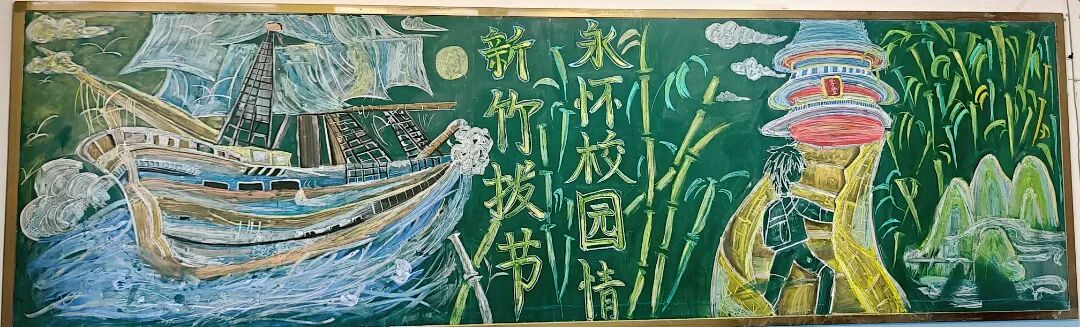 新竹拔节
永怀校园情